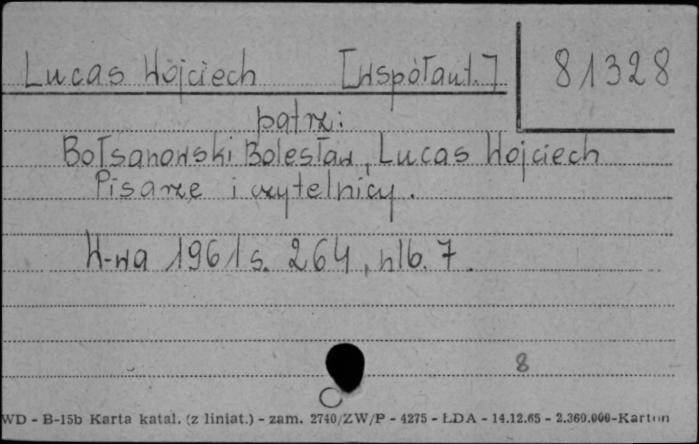 Lucas Wojciech [Współaut.] 81328
patrz:
Bołsanowski Bolesław, Lucas Wojciech
Pisarze i czytelnicy.
W-wa 1961 s. 264, nlb. 7.
8
WD - B-15b Karta katal. (z liniat.) - zam. 2740/ZW/P - 4275 - ŁDA - 14.12.65 - 2.360.000-Karton